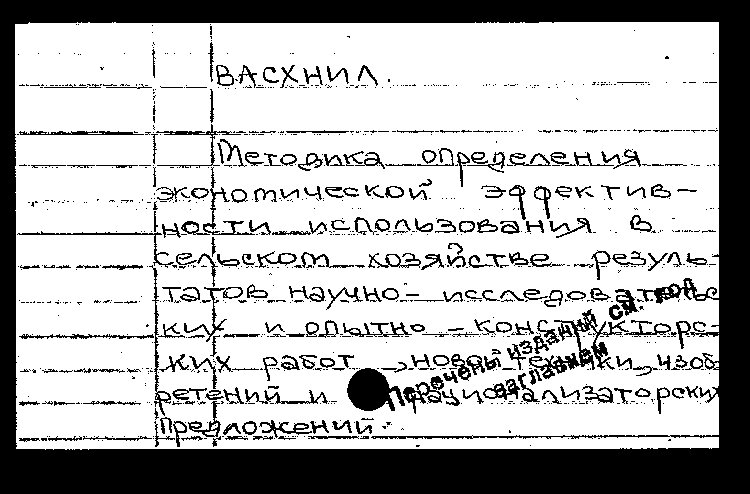 ВАСХНИЛ.
Методика определения
экономической эффектив-
ности использования в
сельском хозяйстве резуль-
татов научно-исследовательс
ких и опытно-конструкторс-
ких работ, новой техники, изоб
ретений и рационализаторских
предложений.
Перечень изданий см. под
заглавием